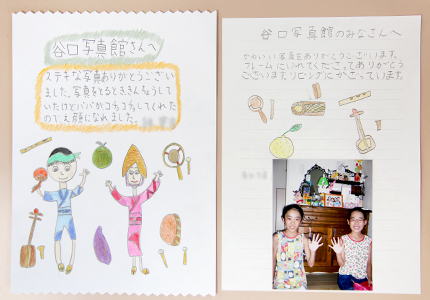 谷口写真館さんへ
ステキな写真ありがとうござい
ました。写真をとるときんちょうして
いたけどパパがコチョコチョしてくれた
のでえ顔になれました。
谷口写真館のみなさんへ
かわいい写真をありがとうございます。
フレームにいれてくださってありがとう
ございます。リビングにかざっています。